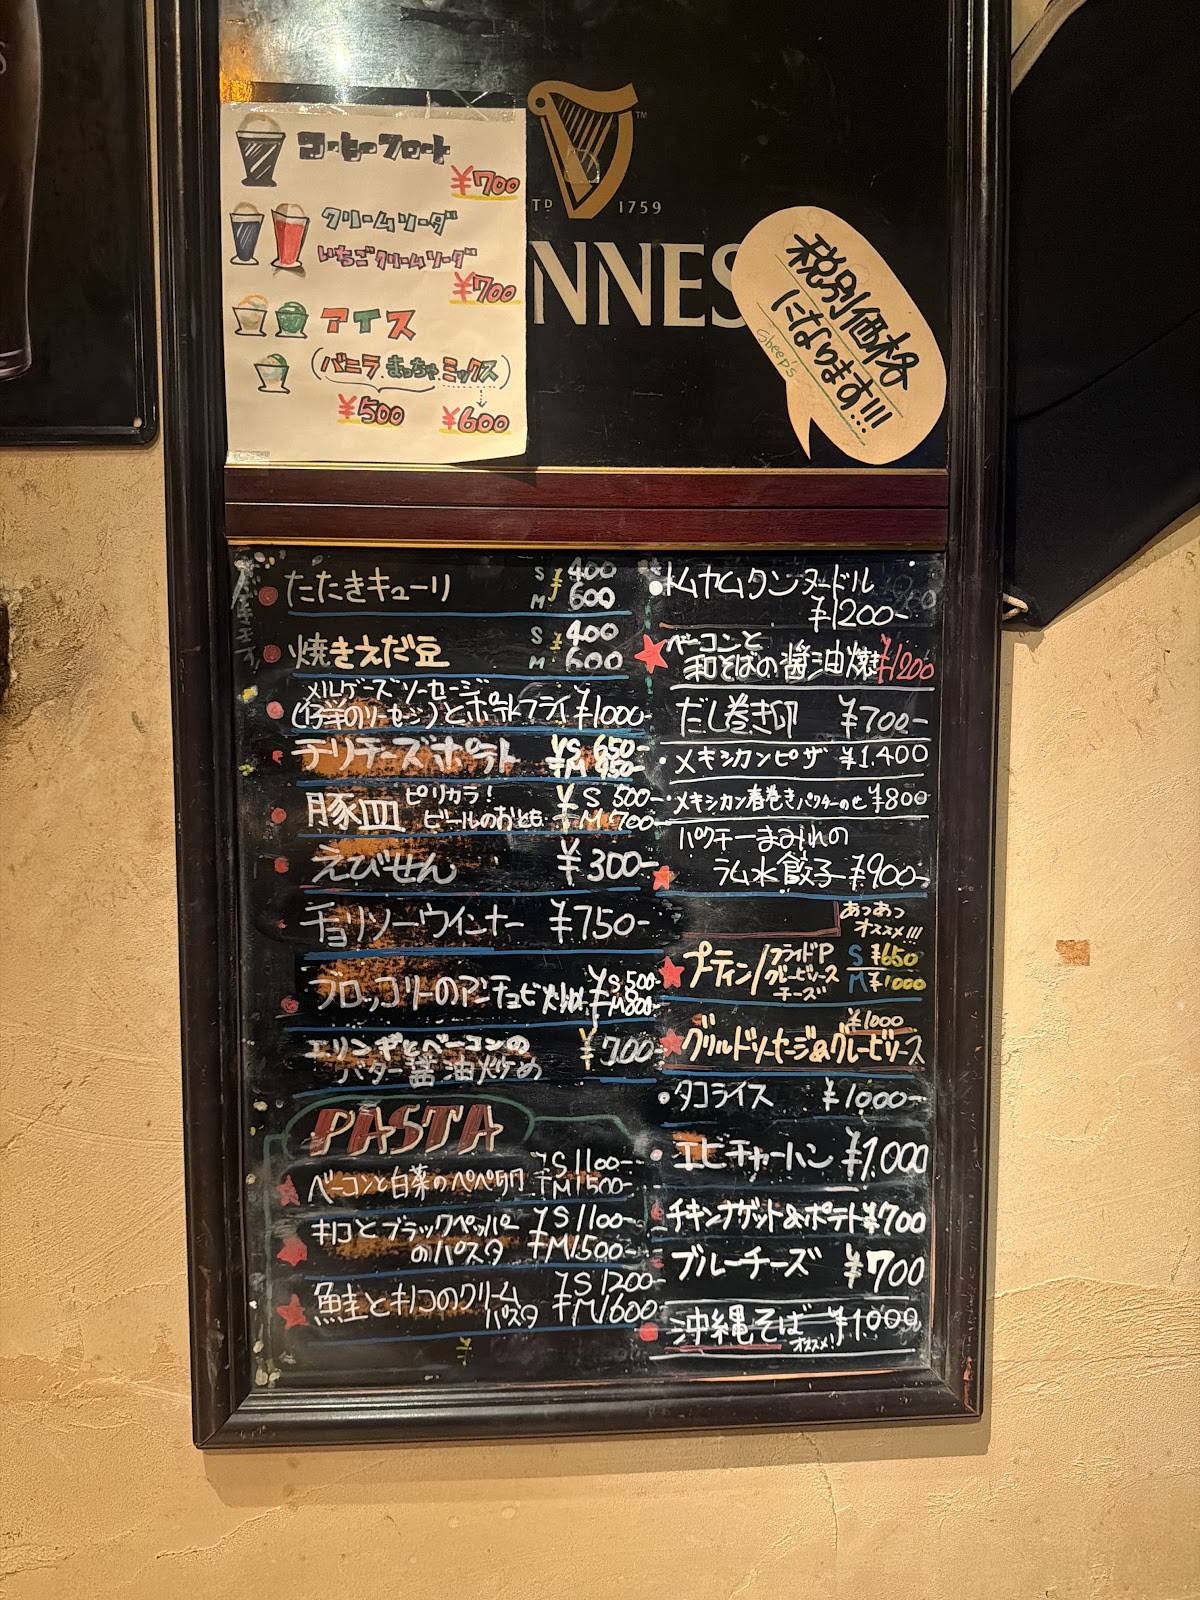 コーヒーフロート
¥700
クリームソーダ
いちごクリームソーダ
¥700
アイス
(バニラ、まっちゃ、ミックス)
¥500 ¥600
TD 1759
NNES
税別価格
になります!!!
Sheep's
たたきキューリ S ¥400
M 600
焼きえだ豆 S ¥400
M 600
メルゲーズソーセージ
(仔羊のソーセージ)とポテトフライ ¥1000-
テリチーズポテト ¥S 650-
¥M 950-
豚皿 ピリカラ! ビールのおとも ¥S 500-
¥M 700-
えびせん ¥300-
チョリソーウインナー ¥750-
ブロッコリーのアンチョビ炒め ¥S 500-
¥M 800-
エリンギとベーコンの
バター醤油炒め ¥700-
PASTA
ベーコンと白菜のペペロンチーノ ¥S 1100-
¥M 1500-
キノコとブラックペッパー
のパスタ ¥S 1100-
¥M 1500-
鮭とキノコのクリーム
パスタ ¥S 1200-
¥M 1600-
トムヤムクンヌードル
¥1200-
ベーコンと
和そばの醤油焼き ¥1200
だし巻き卵 ¥700-
メキシカンピザ ¥1,400
メキシカン春巻き パクチーのせ ¥800
パクチーまみれの
ラム水餃子 ¥900-
あつあつ
オススメ!!!
プーティン/フライドP
グレービーソース
チーズ
S ¥650
M ¥1000
¥1000
グリルドソーセージ&グレービーソース
タコライス ¥1000-
エビチャーハン ¥1,000
チキンナゲット&ポテト ¥700
ブルーチーズ ¥700
沖縄そば オススメ! ¥1000